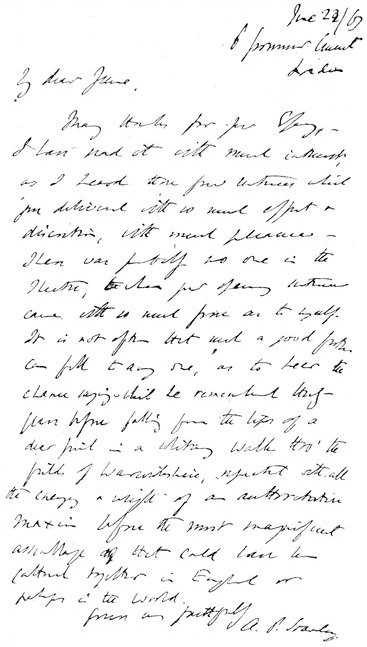 June 22/67
6 Grosvenor Crescent
London
My dear
Many thanks for your Essay,
I have read it with much interest,
as I heard those four sentences which
you delivered with so much effect &
discretion, with much pleasure –
There was probably no one in the
Theatre, to whom your opening sentence
came with so much force as to myself.
It is not often that such a good fortune
can fall to any one, as to hear the
chance saying which he remembered thirty
years before falling from the lips of a
dear friend in a solitary walk thro' the
fields of Warwickshire, repeated with all
the energy & weight of an authoritative
maxim before the most magnificent
assemblage that could have been
gathered together in England or
perhaps in the world.
Yours very faithfully
A. P. Stanley